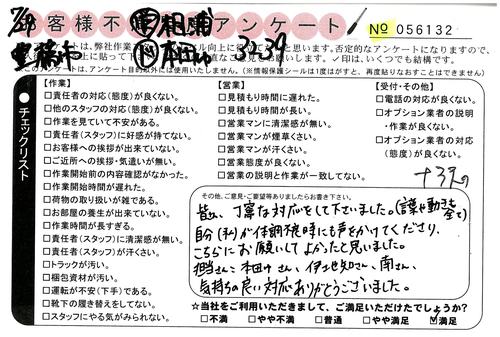 7/29 お客様不満 アンケート № 056132
豊橋市 本田 3239
【作業】
□責任者の対応(態度)が良くない。
□他のスタッフの対応(態度)が良くない。
□作業を見ていて不安がある。
□責任者(スタッフ)に好感が持てない。
□お客様への挨拶が出来ていない。
□ご近所への挨拶・気遣いが無い。
□作業開始前の内容確認がなかった。
□作業開始時間が遅れた。
□荷物の取り扱いが雑である。
□お部屋の養生が出来ていない。
□作業時間が長すぎる。
□責任者(スタッフ)に清潔感が無い。
□責任者(スタッフ)が汗くさい。
□トラックが汚い。
□梱包資材が汚い。
□運転が不安(下手)である。
□靴下の履き替えをしてない。
□スタッフにやる気がみられない。
【営業】
□見積もり時間に遅れた。
□見積もり時間が長い。
□営業マンに清潔感が無い。
□営業マンが煙草くさい。
□営業マンが汗くさい。
□営業態度が良くない。
□営業の説明と作業が一致してない。
【受付・その他】
□電話の対応が良くない。
□オプション業者の説明
・作業が良くない。
□オプション業者の対応
(態度)が良くない。
チェックリスト
その他、ご意見・ご要望等ありましたらお書き下さい。
皆さん、丁寧な対応をして下さいました。(言葉も動きも全て)
自分(私)が体調不良時にも声をかけてくださり、
こちらにお願いしてよかったと思いました。
担当さん:本田さん、伊地知さん、南さん、
気持ちの良い対応ありがとうございました。
☆当社をご利用いただきまして、ご満足いただけたでしょうか?
□不満 □やや不満 □普通 □やや満足 ☑満足